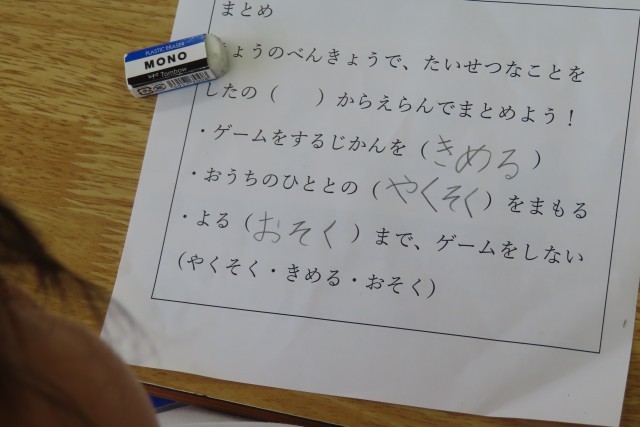 まとめ
PLASTIC ERASER
MONO
Tombow
ょうのべんきょうで、たいせつなことを
したの（　　）からえらんでまとめよう！
・ゲームをするじかんを（きめる）
・おうちのひととの（やくそく）をまもる
・よる（おそく）まで、ゲームをしない
（やくそく・きめる・おそく）